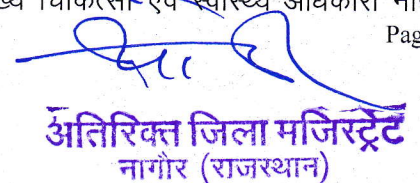 चिकित्सा एवं स्वास्थ्य अधिकारी
Pag
अतिरिक्त जिला मजिस्ट्रेट
नागौर (राजस्थान)